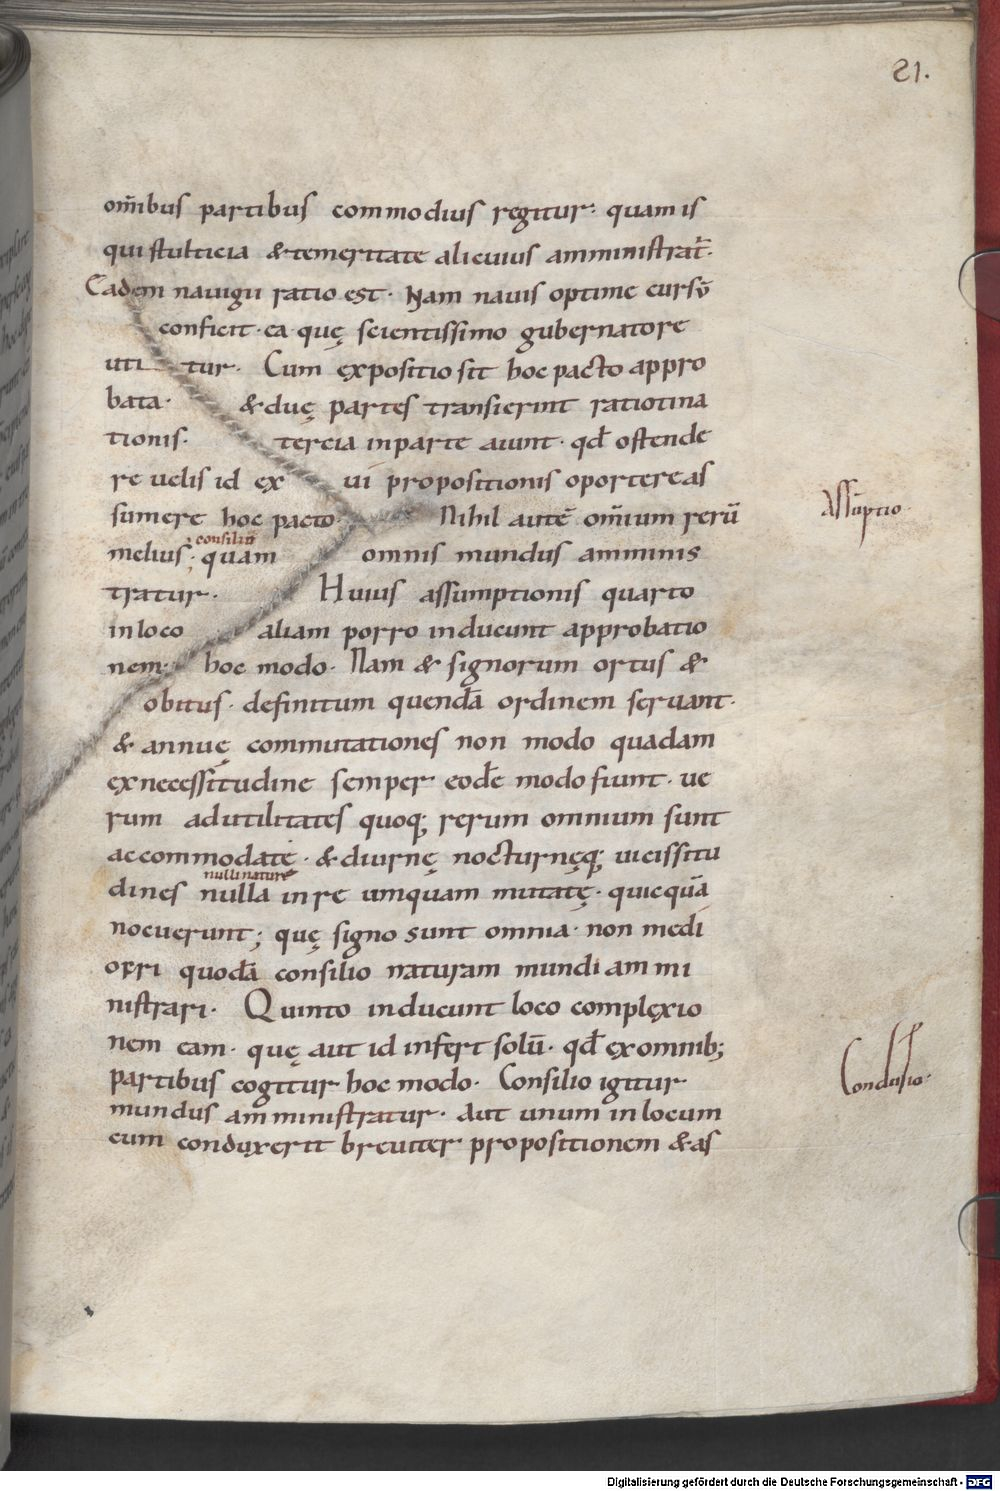 21.
om̄ibus partibus commodius regitur· quam is
qui stulticia & temeritate alicuius amministrat̄·
Eadem nauigii ratio est· Nam nauis optime cursū
conficit· ea quę scientissimo gubernatore
uti tur· Cum expositio sit hoc pacto appro
bata· & duę partes transierint ratiotina
tionis· tercia in parte aiunt· qd̄ ostende
re uelis id ex ui propositionis oportere as
sumere hoc pacto· Nihil autē om̄ium rerū
Assūptio·
consilio
melius· quam omnis mundus amminis
tratur· Huius assumptionis quarto
in loco aliam porro inducunt approbatio
nem· hoc modo· Nam & signorum ortus &
obitus· definitum quendā ordinem seruant·
& annuę commutationes non modo quadam
ex necessitudine semper eodē modo fiunt· ue
rum ad utilitates quoq; rerum omnium sunt
accommodatę· & diurnę nocturnęq; uicissitu
nulli naturę
dines nulla in re umquam mutatę· quicquā
nocuerunt; quę signo sunt omnia· non medi
ocri quodā consilio naturam mundi ammi
nistrari· Quinto inducunt loco complexio
nem eam· quę aut id infert solū· qd̄ ex omnib;
Conclusio·
partibus cogitur hoc modo· Consilio igitur
mundus am̄ministratur· Aut unum in locum
cum conduxerit breuiter propositionem & as
Digitalisierung gefördert durch die Deutsche Forschungsgemeinschaft - DFG